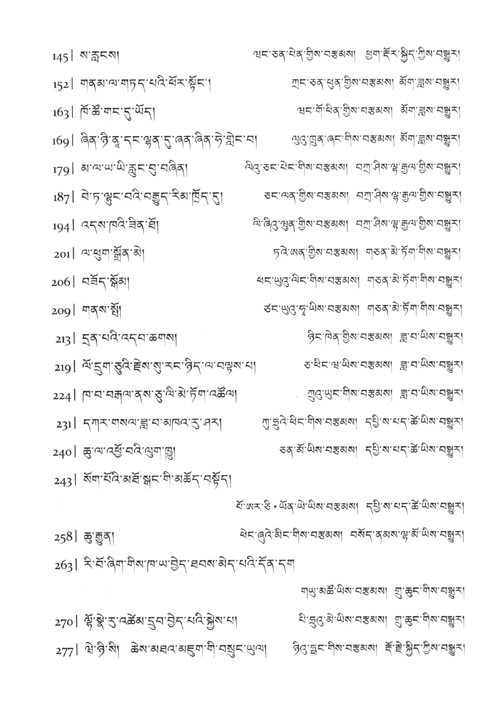 145། ས་རླངས། ཝང་ཅན་པེན་གྱིས་བརྩམས། ཕྱག་རྡོར་སྐྱིད་ཀྱིས་བསྒྱུར།
152། གནམ་ལ་གཏད་པའི་ཕོར་སྟོང་། ཀྲང་ཅན་ཕུན་གྱིས་བརྩམས། མོག་ཟླས་བསྒྱུར།
163། ཁོ་ཚོ་གང་དུ་ཡོད། ཝང་གོ་ཕིན་གྱིས་བརྩམས། མོག་ཟླས་བསྒྱུར།
169། ཞིན་ཉི་ནཱ་དང་ལྷན་དུ་ཞན་ཞིན་ཧེ་གླེང་བ། ལུའུ་ཁྲུན་ཞང་གིས་བརྩམས། མོག་ཟླས་བསྒྱུར།
179། མ་ལ་ཡ་ཡི་རླུང་བུ་བཞིན། ལིའུ་ཅང་པེང་གིས་བརྩམས། བཀྲ་ཤིས་ལྷ་རྒྱལ་གྱིས་བསྒྱུར།
187། བེ་ཏ་ལྷུང་བའི་བརྒྱུད་རིམ་ཁྲོད་དུ། ཅང་ལན་གྱིས་བརྩམས། བཀྲ་ཤིས་ལྷ་རྒྱལ་གྱིས་བསྒྱུར།
194། འདས་ཁའི་ཟིན་ཐོ། ལི་ཞིའུ་ཝུན་གྱིས་བརྩམས། བཀྲ་ཤིས་ལྷ་རྒྱལ་གྱིས་བསྒྱུར།
201། ལ་ཕུག་སྒྲོན་མེ། ཏའེ་ཨན་གྱིས་བརྩམས། གཅན་མེ་ཏོག་གིས་བསྒྱུར།
206། བཟོད་སྒོམ། ཕང་ཡུའུ་ལིང་གིས་བརྩམས། གཅན་མེ་ཏོག་གིས་བསྒྱུར།
209། གནས་སྤོ། ཙོང་ཡུའུ་ཧྭ་ཡིས་བརྩམས། གཅན་མེ་ཏོག་གིས་བསྒྱུར།
213། དྲན་པའི་འདབ་ཆགས། ཉིང་ཁེན་གྱིས་བརྩམས། ཟླ་བ་ཡིས་བསྒྱུར།
219། ལོ་དྲུག་ཅུའི་རྗེས་སུ་རང་ཉིད་ལ་བལྟས་པ། ཅ་ཕིང་ཝ་ཡིས་བརྩམས། ཟླ་བ་ཡིས་བསྒྱུར།
224། ཁ་བ་བརྒལ་ནས་ཅུ་ལི་མེ་ཏོག་འཚོལ། ཀྲུའུ་ཡུང་གིས་བརྩམས། ཟླ་བ་ཡིས་བསྒྱུར།
231། དཀར་གསལ་ཟླ་བ་མཁའ་རུ་ཤར། ཀུ་ཧྲུའེ་ཕིང་གིས་བརྩམས། དཔྱི་ས་པད་ཚེ་ཡིས་བསྒྱུར།
240། ཆུ་ལ་འཕྱོ་བའི་ལུག་ཁྱུ། ཅན་མོ་ཡིས་བརྩམས། དཔྱི་ས་པད་ཚེ་ཡིས་བསྒྱུར།
243། སོག་པོའི་མཐོ་སྒང་གི་མཆོད་བསྟོད།
པོ་ཨར་ཅི་·ཡོན་ཡེ་ཡིས་བརྩམས། དཔྱི་ས་པད་ཚེ་ཡིས་བསྒྱུར།
258། ཆུ་རྒྱུན། ཕེང་ཞུའེ་མིང་གིས་བརྩམས། བསོད་ནམས་ལྷ་མོ་ཡིས་བསྒྱུར།
263། རི་བོ་ཞིག་གིས་ཁ་ཡ་བྱེད་ཐབས་མེད་པའི་དོན་དག
གཡུ་མཚོ་ཡིས་བརྩམས། གྲུ་ཆུང་གིས་བསྒྱུར།
270། ལྷོ་སྣེ་རུ་འཚེམ་དྲུབ་བྱེད་པའི་སྐྱེས་པ། པི་ཧྲུའུ་མེ་ཡིས་བརྩམས། གྲུ་ཆུང་གིས་བསྒྱུར།
277། ཝེ་ཉི་སི། ཆེས་མཐའ་མཇུག་གི་བསྲུང་ཡུལ། ཉིའུ་ཧྥང་གིས་བརྩམས། རྡོ་རྗེ་སྐྱིད་ཀྱིས་བསྒྱུར།